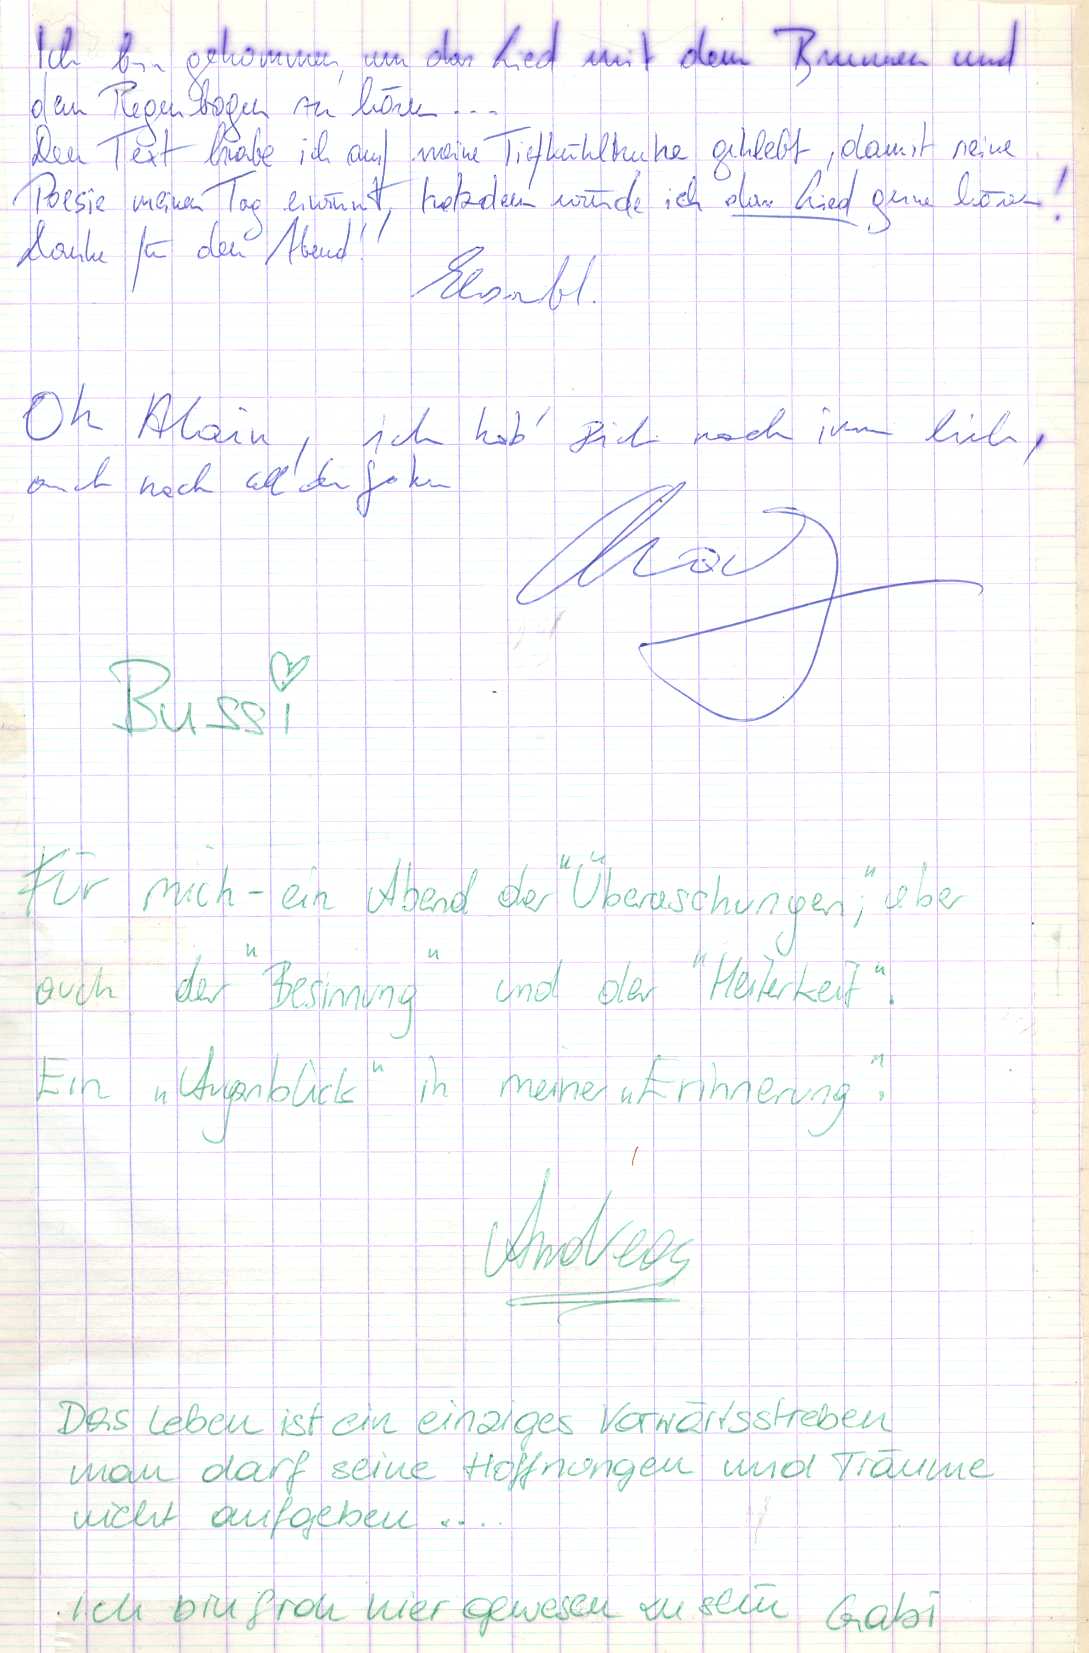 Ich bin gekommen, um das Lied mit dem Brunnen und
dem Regenbogen zu hören ...
Den Text habe ich auf meine Tiefkühltruhe geklebt, damit seine
Poesie meinen Tag erwärmt, trotzdem würde ich das Lied gerne hören!
Danke für den Abend!!
Oh Alain, ich hab' Dich noch imm lieb,
auch nach all' den Jahren
Bussi
Für mich - ein Abend der "Überaschungen", aber
auch der "Besinnung" und der "Heiterkeit".
Ein "Augenblick" in meiner "Erinnerung".
Andreas
Das Leben ist ein einziges Vorwärtsstreben
man darf seine Hoffnungen und Träume
nicht aufgeben ....
Ich bin froh hier gewesen zu sein Gabi